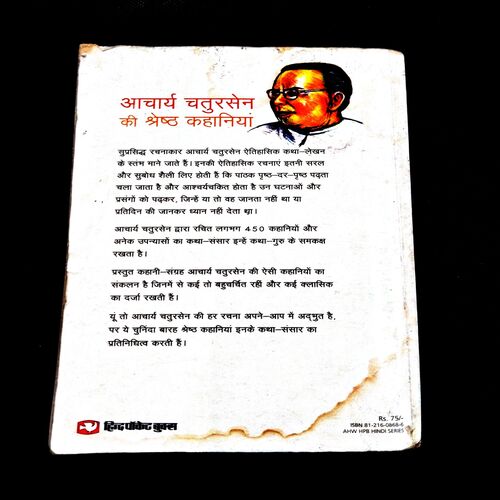 आचार्य चतुरसेन
की श्रेष्ठ कहानियां
सुप्रसिद्ध रचनाकार आचार्य चतुरसेन ऐतिहासिक कथा–लेखन
के स्तंभ माने जाते हैं। इनकी ऐतिहासिक रचनाएं इतनी सरल
और सुबोध शैली लिए होती हैं कि पाठक पृष्ठ–दर–पृष्ठ पढ़ता
चला जाता है और आश्चर्यचकित होता है उन घटनाओं और
प्रसंगों को पढ़कर, जिन्हें या तो वह जानता नहीं था या
प्रतिदिन की जानकर ध्यान नहीं देता था।
आचार्य चतुरसेन द्वारा रचित लगभग 450 कहानियों और
अनेक उपन्यासों का कथा–संसार इन्हें कथा–गुरु के समकक्ष
रखता है।
प्रस्तुत कहानी–संग्रह आचार्य चतुरसेन की ऐसी कहानियों का
संकलन है जिनमें से कई तो बहुचर्चित रहीं और कई क्लासिक
का दर्जा रखती हैं।
यूं तो आचार्य चतुरसेन की हर रचना अपने–आप में अद्भुत है,
पर ये चुनिंदा बारह श्रेष्ठ कहानियां इनके कथा–संसार का
प्रतिनिधित्व करती हैं।
हिन्द पॉकेट बुक्स
Rs. 75/-
ISBN 81-216-0868-6
AHW HPB HINDI SERIES